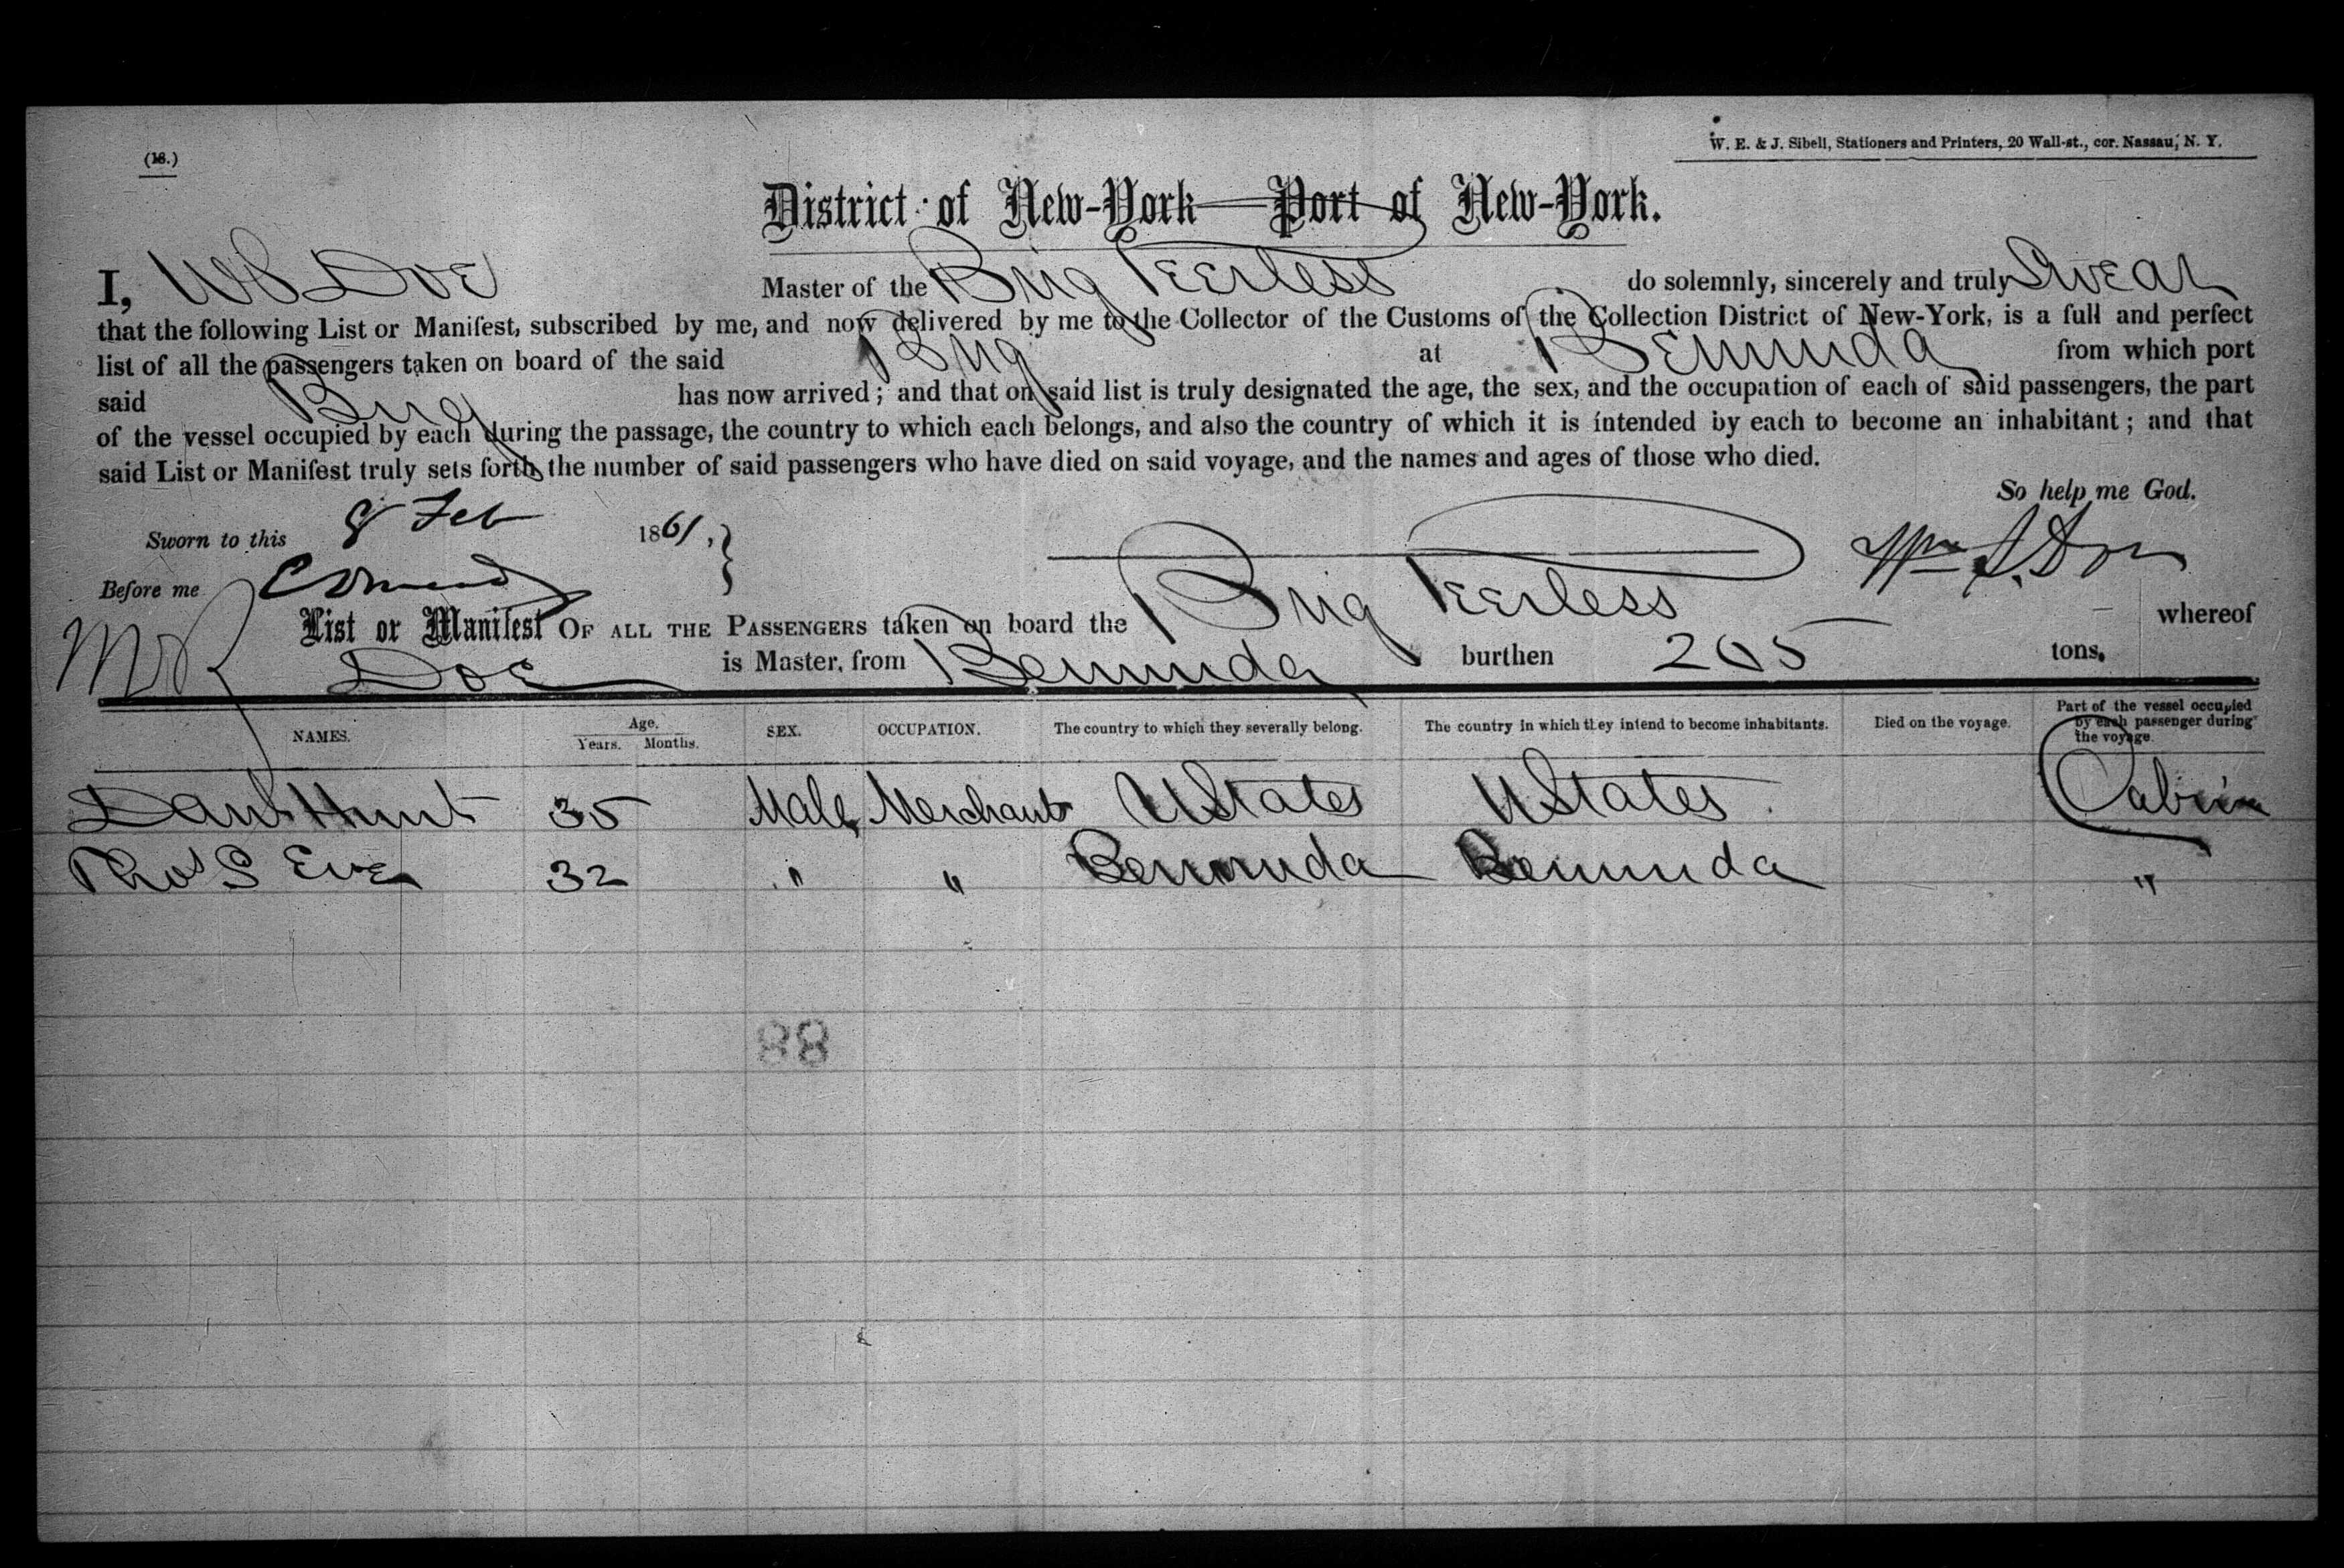 (18.)
W. E. & J. Sibell, Stationers and Printers, 20 Wall-st., cor. Nassau, N. Y.
District of New-York—Port of New-York.
I, Master of the Brig Peerless do solemnly, sincerely and truly Swear
that the following List or Manifest, subscribed by me, and now delivered by me to the Collector of the Customs of the Collection District of New-York, is a full and perfect
list of all the passengers taken on board of the said Brig at Bermuda from which port
said Brig has now arrived; and that on said list is truly designated the age, the sex, and the occupation of each of said passengers, the part
of the vessel occupied by each during the passage, the country to which each belongs, and also the country of which it is intended by each to become an inhabitant; and that
said List or Manifest truly sets forth the number of said passengers who have died on said voyage, and the names and ages of those who died.
So help me God.
Sworn to this 8 Feb 1861,
Before me
List or Manifest OF ALL THE PASSENGERS taken on board the Brig Peerless whereof
is Master, from Bermuda burthen 205 tons.
NAMES. Age. Years. Months. SEX. OCCUPATION. The country to which they severally belong. The country in which they intend to become inhabitants. Died on the voyage. Part of the vessel occupied by each passenger during the voyage.
Hunt 35 Male Merchant UStates UStates Cabin
Thos S Eve 32 " " Bermuda Bermuda "
88